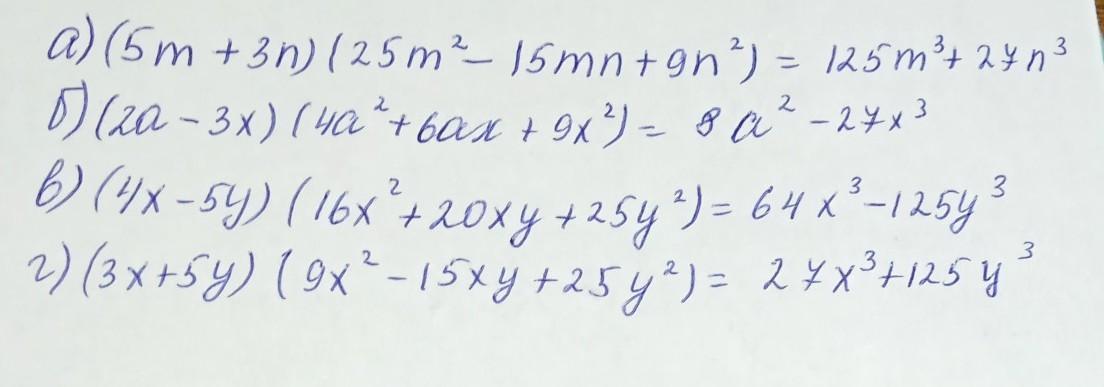 а) (5m + 3n) (25m² - 15mn + 9n²) = 125m³ + 27n³
б) (2a - 3x) (4a² + 6ax + 9x²) = 8a² - 27x³
в) (4x - 5y) (16x² + 20xy + 25y²) = 64x³ - 125y³
г) (3x + 5y) (9x² - 15xy + 25y²) = 27x³ + 125y³